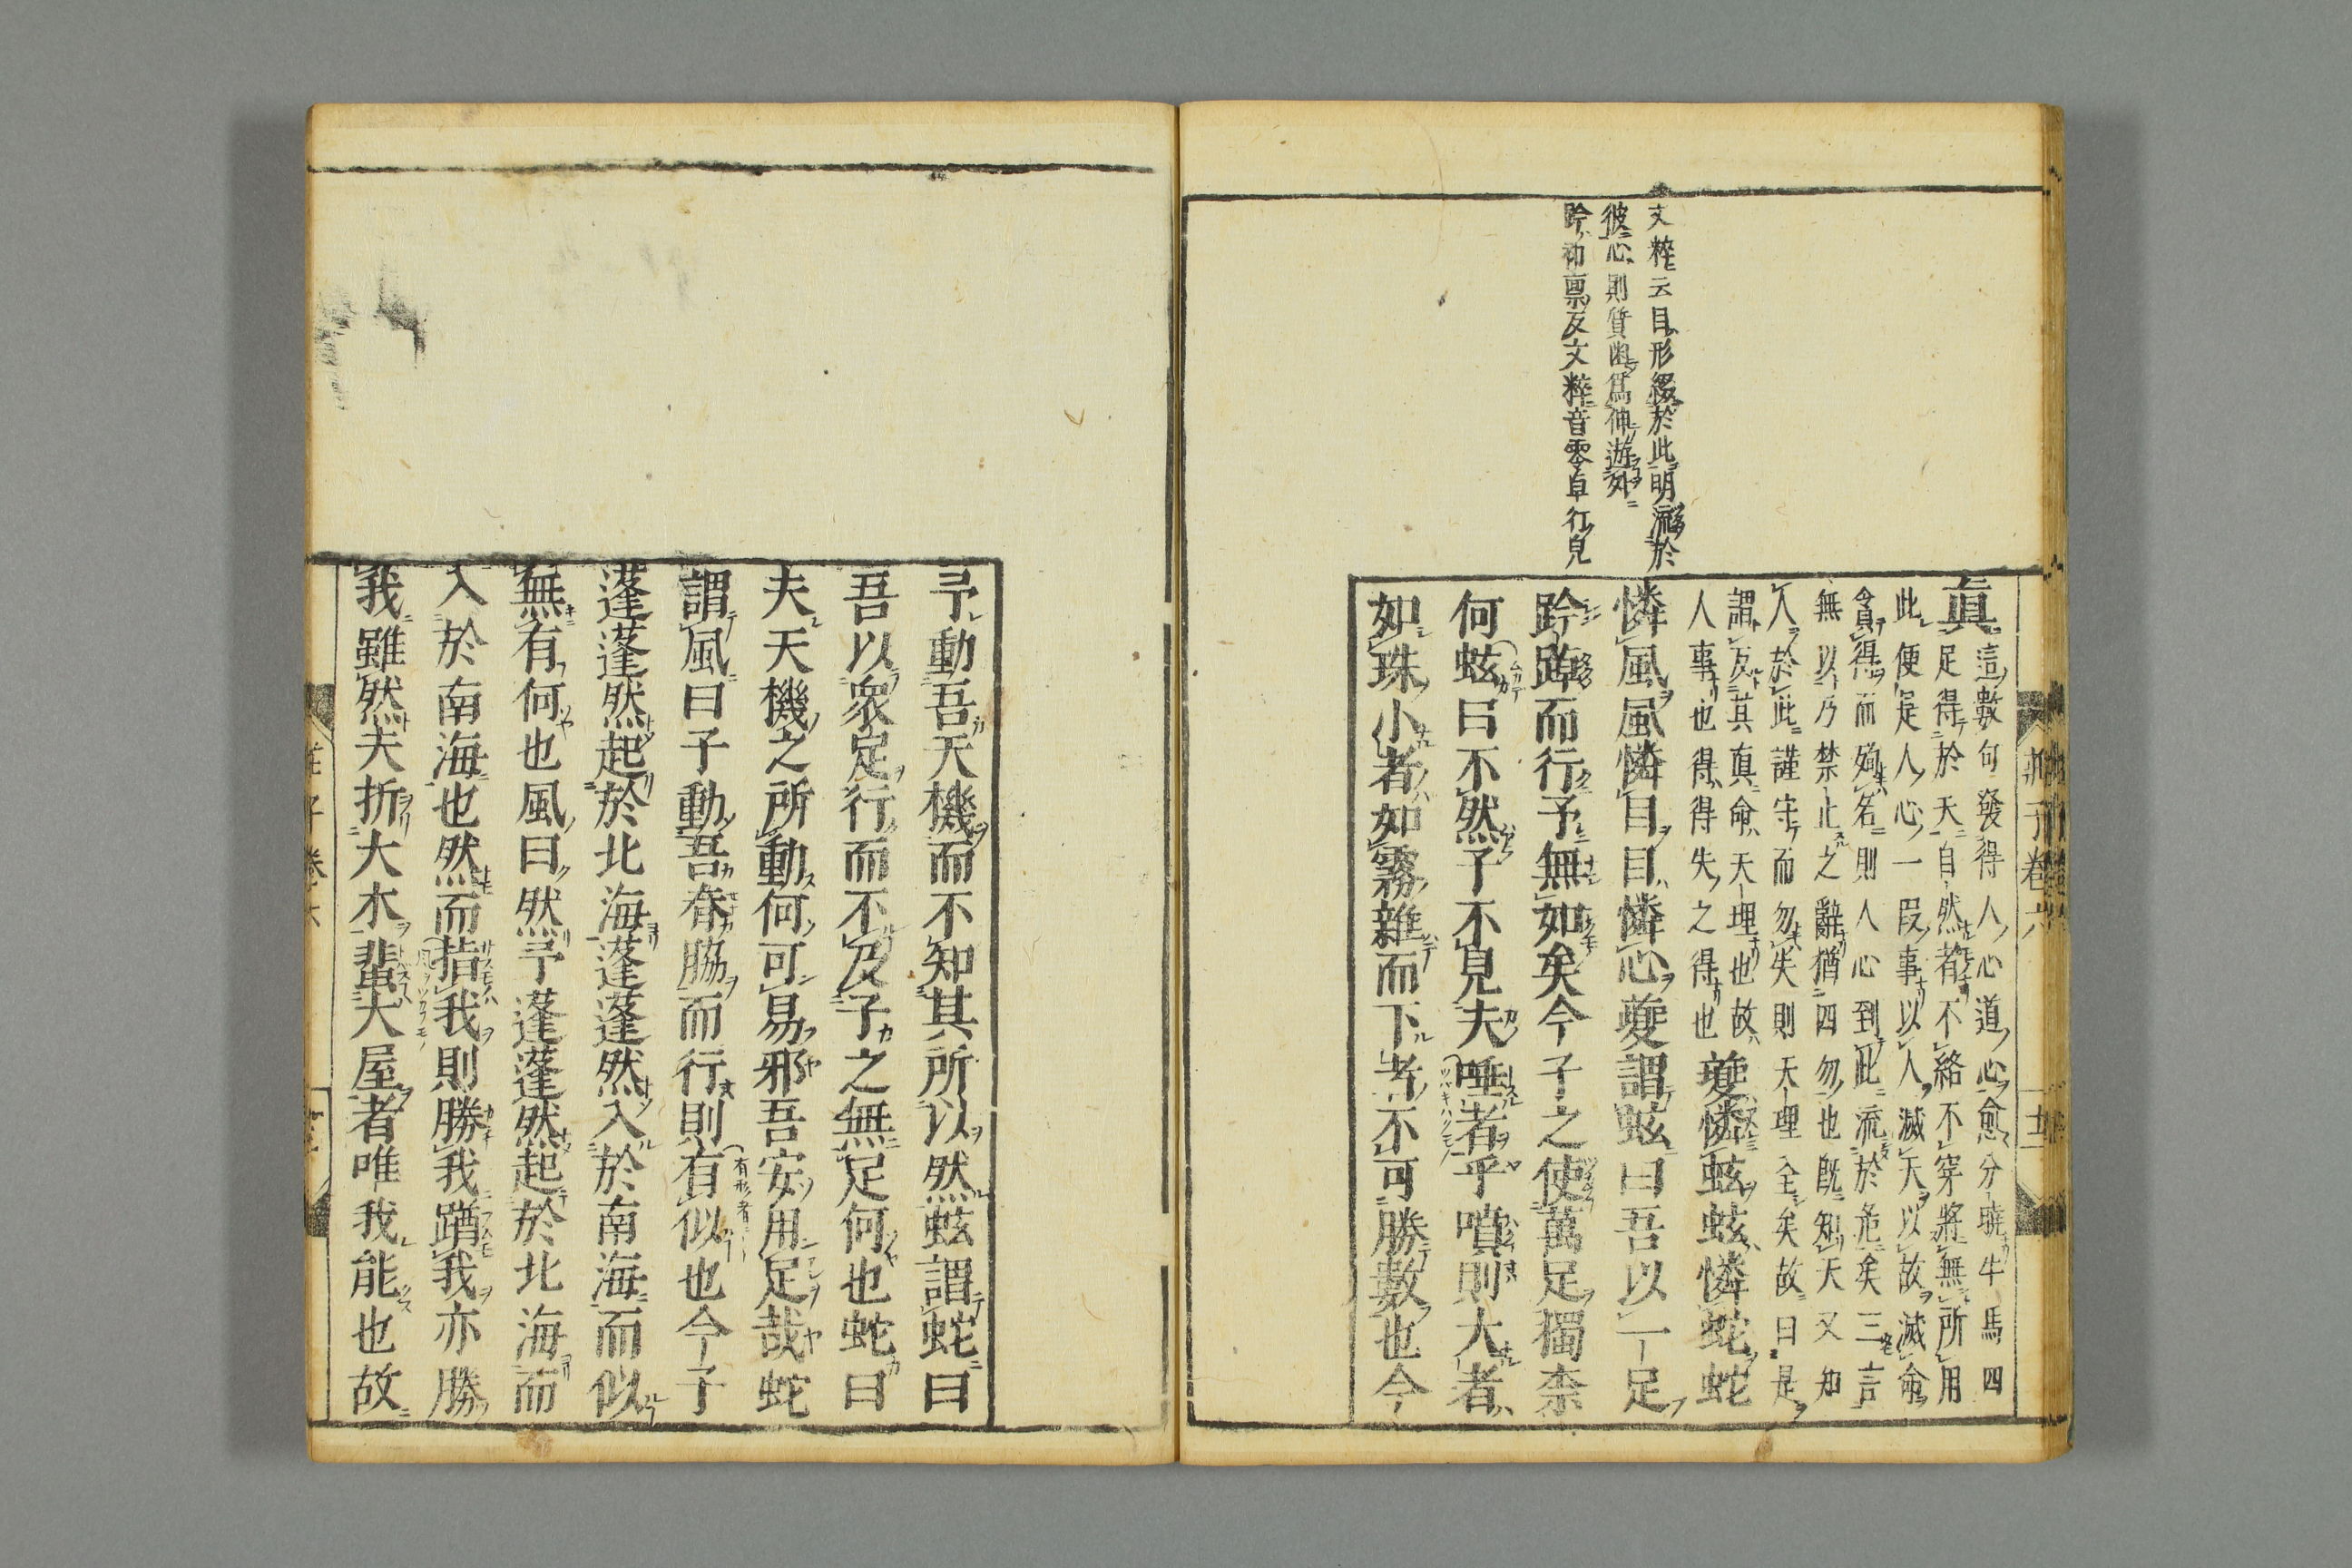 文粹云目形綴於此明流於
彼心則質幽爲神遊外
趻初禀反文粹音零卓行皃
莊子卷六
眞
這數句發得人心道心愈分曉牛馬四
足得於天自然者不絡不穿將無所用
此便是人心一段事以人滅天以故滅命
貪得而殉名則人心到此流於危矣三言
無以乃禁止之辭猶四勿也既知天又知
人於此謹守而勿失則天理全矣故曰是
謂反其眞命天理也故
人事也得得失之得也
夔憐蚿蚿憐蛇蛇
憐風風憐目目憐心夔謂蚿曰吾以一足
趻踔而行予無如矣今子之使萬足獨柰
何蚿曰不然予不見夫唾者乎噴則大者
如珠小者如霧雜而下者不可勝數也今
予動吾天機而不知其所以然蚿謂蛇曰
吾以衆足行而不及子之無足何也蛇曰
夫天機之所動何可易邪吾安用足哉蛇
謂風曰予動吾脊脇而行則有似也今子
蓬蓬然起於北海蓬蓬然入於南海而似
無有何也風曰然予蓬蓬然起於北海而
入於南海也然而指我則勝我蹭我亦勝
我雖然夫折大木蜚大屋者唯我能也故
莊子卷六